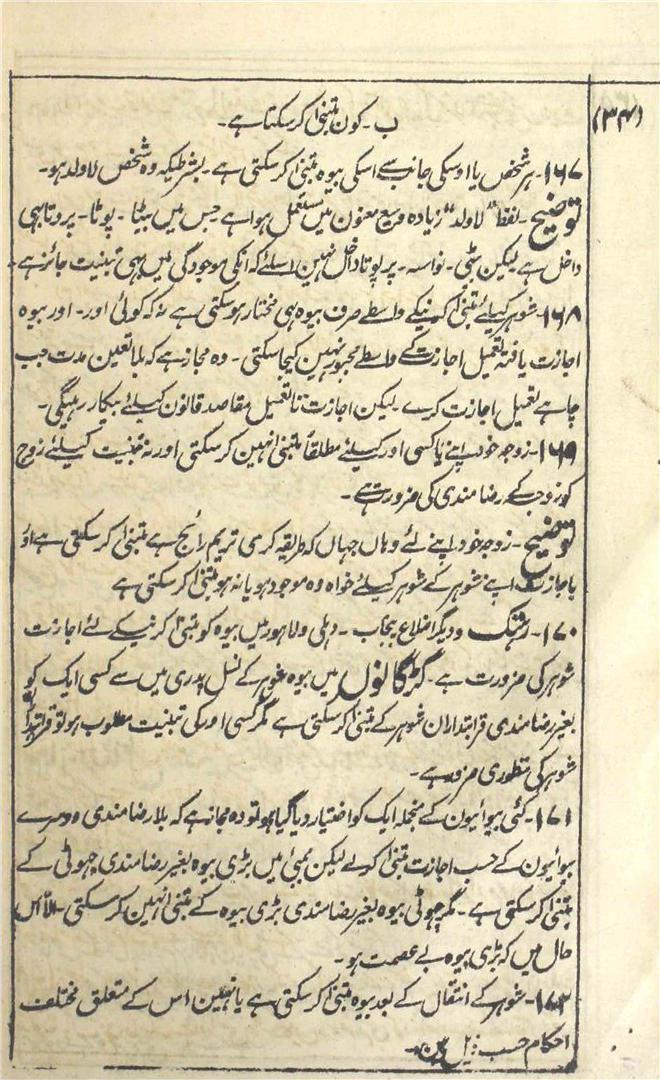 (۳۴)
ب۔ کون متبنیٰ کرسکتا ہے۔
۱۶۷۔ ہر شخص یا اوسکی جانب سے اسکی بیوہ متبنیٰ کرسکتی ہے۔ بشرطیکہ وہ شخص لاولد ہو۔
توضیح۔ لفظ "لاولد" زیادہ وسیع معنون میں مستعمل ہوا ہے جس میں بیٹا۔ پوتا۔ پروتا بھی
داخل ہے لیکن بٹی۔ نواسہ۔ پرپوتا داخل نہین اسلئے کہ انکی موجودگی میں بھی تبنیت جائز ہے۔
۱۶۸۔ شوہر کیلئے متبنیٰ کرنیکے واسطے صرف بیوہ ہی مختار ہوسکتی ہے نہ کہ کوئی اور۔ اور بیوہ
اجازت یافتہ تعمیل اجازت کے واسطے مجبور نہین کیجاسکتی۔ وہ مجاز ہے کہ بلا تعین مدت جب
چاہے تعمیل اجازت کرے لیکن اجازت تا تعمیل مقاصد قانون کیلئے بیکار رہیگی۔
۱۶۹۔ زوجہ خود اپنے یا کسی اور کیلئے مطلقاً متبنیٰ نہین کرسکتی اور نہ تبنیت کیلئے زوج
کو زوجہ کے رضامندی کی ضرورت ہے۔
توضیح۔ زوجہ خود اپنے لئے وہاں جہاں کہ طریقہ کرمی تریم رائج ہے متبنیٰ کرسکتی ہے اور
باجازت اپنے شوہر کے شوہر کیلئے خواہ وہ موجود ہو یا نہ ہو متبنیٰ کرسکتی ہے
۱۷۰۔ رہتک و دیگر اضلاع پنجاب۔ دہلی و لاہور میں بیوہ کو متبنیٰ کرنیکے لئے اجازت
شوہر کی ضرورت ہے۔ گڑگانوں میں بیوہ شوہر کے نسل پدری میں سے کسی ایک کو
بغیر رضامندی قرابتداران شوہر کے متبنیٰ کرسکتی ہے مگر کسی اور کی تبنیت مطلوب ہو تو قرابتداران
شوہر کی منظوری ضرور ہے۔
۱۷۱۔ کئی بیوائیون کے منجملہ ایک کو اختیار دیا گیا ہو تو وہ مجاز ہے کہ بلا رضامندی دوسرے
بیوائیون کے حسب اجازت متبنیٰ کرلے لیکن بمبئی میں بڑی بیوہ بغیر رضامندی چھوٹی کے
متبنیٰ کرسکتی ہے۔ مگر چھوٹی بیوہ بغیر رضامندی بڑی بیوہ کے متبنیٰ نہین کرسکتی۔ الّا اس
حال میں کہ بڑی بیوہ بے عصمت ہو۔
۱۷۲۔ شوہر کے انتقال کے بعد بیوہ متبنیٰ کرسکتی ہے یا نہین اس کے متعلق مختلف
احکام حسب ذیل ہین۔